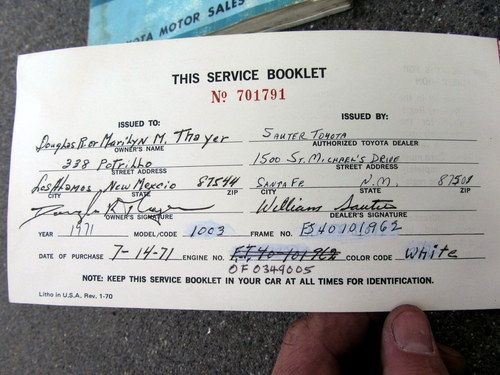 OTA MOTOR SALES
THIS SERVICE BOOKLET
No 701791
ISSUED TO: ISSUED BY:
Douglas R or Marilyn M. Thayer SAUTER TOYOTA
OWNER'S NAME AUTHORIZED TOYOTA DEALER
338 Potrillo 1500 ST. MICHAEL'S DRIVE
STREET ADDRESS STREET ADDRESS
Los Alamos, New Mexcio 87544 SANTA FE N.M. 87501
CITY STATE ZIP CITY STATE ZIP
William Sauter
OWNER'S SIGNATURE DEALER'S SIGNATURE
YEAR 1971 MODEL/CODE 1003 FRAME NO. FJ40101962
DATE OF PURCHASE 7-14-71 ENGINE NO. FJ40-101962 COLOR CODE White
OF0349005
NOTE: KEEP THIS SERVICE BOOKLET IN YOUR CAR AT ALL TIMES FOR IDENTIFICATION.
Litho in U.S.A. Rev. 1-70